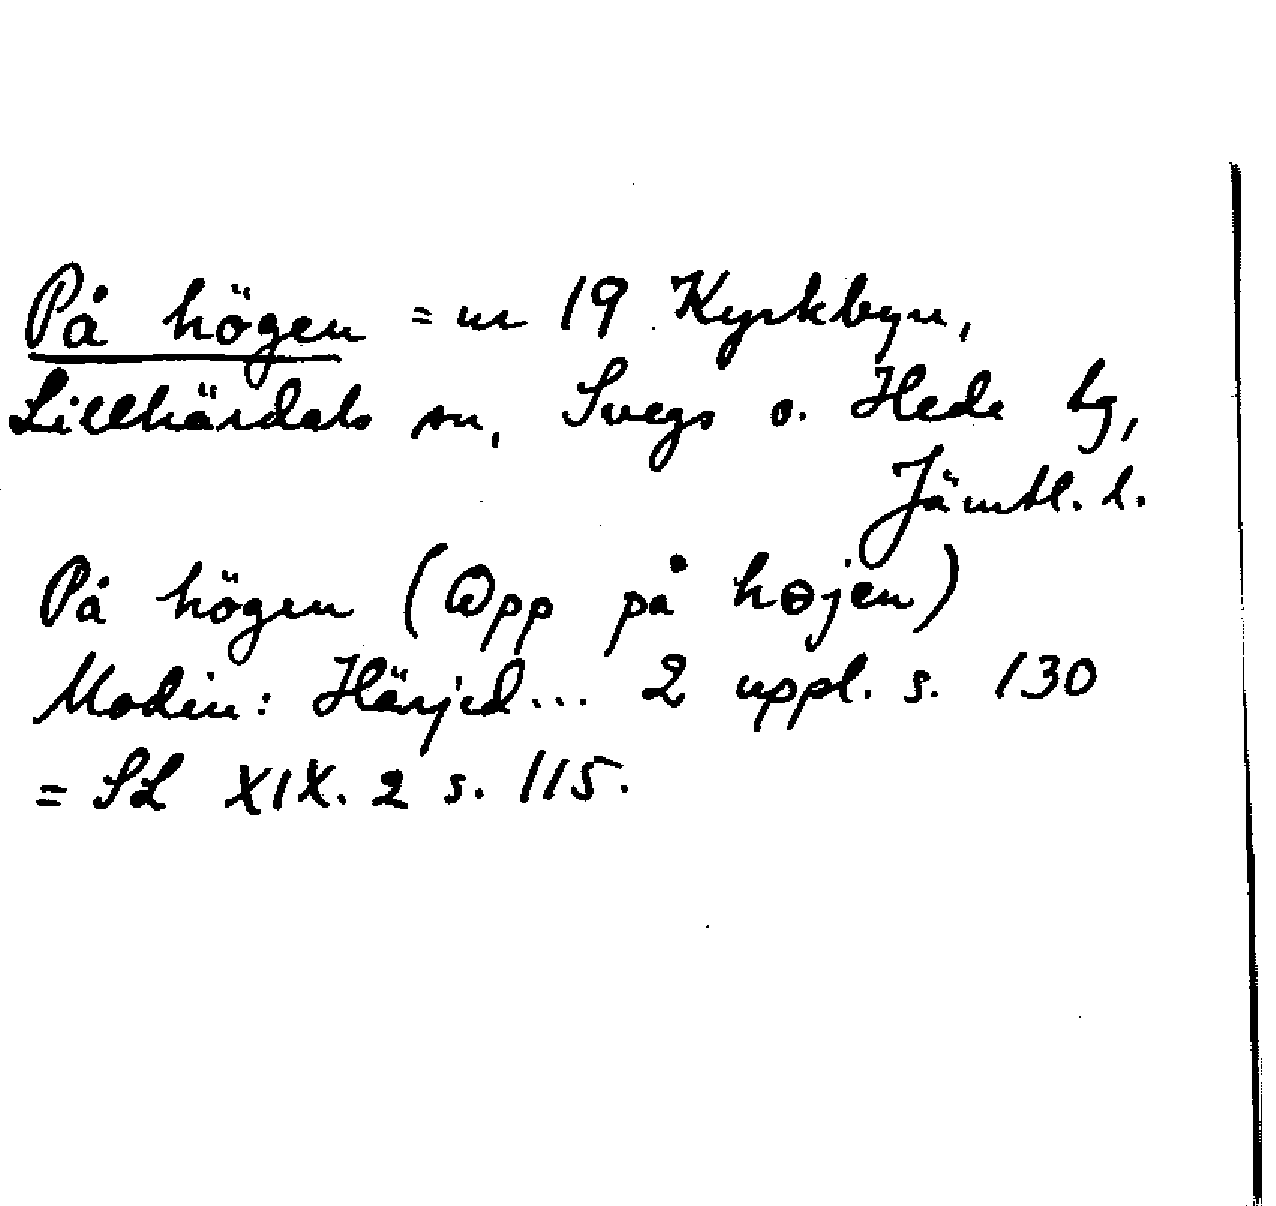 På högen = nr 19 Kyrkbyn,
Lillhärdals sn, Svegs o. Hede tg,
Jämtl. l.
På högen (Opp på højen)
Modin: Härjed... 2 uppl. s. 130
= SL XIX. 2 s. 115.